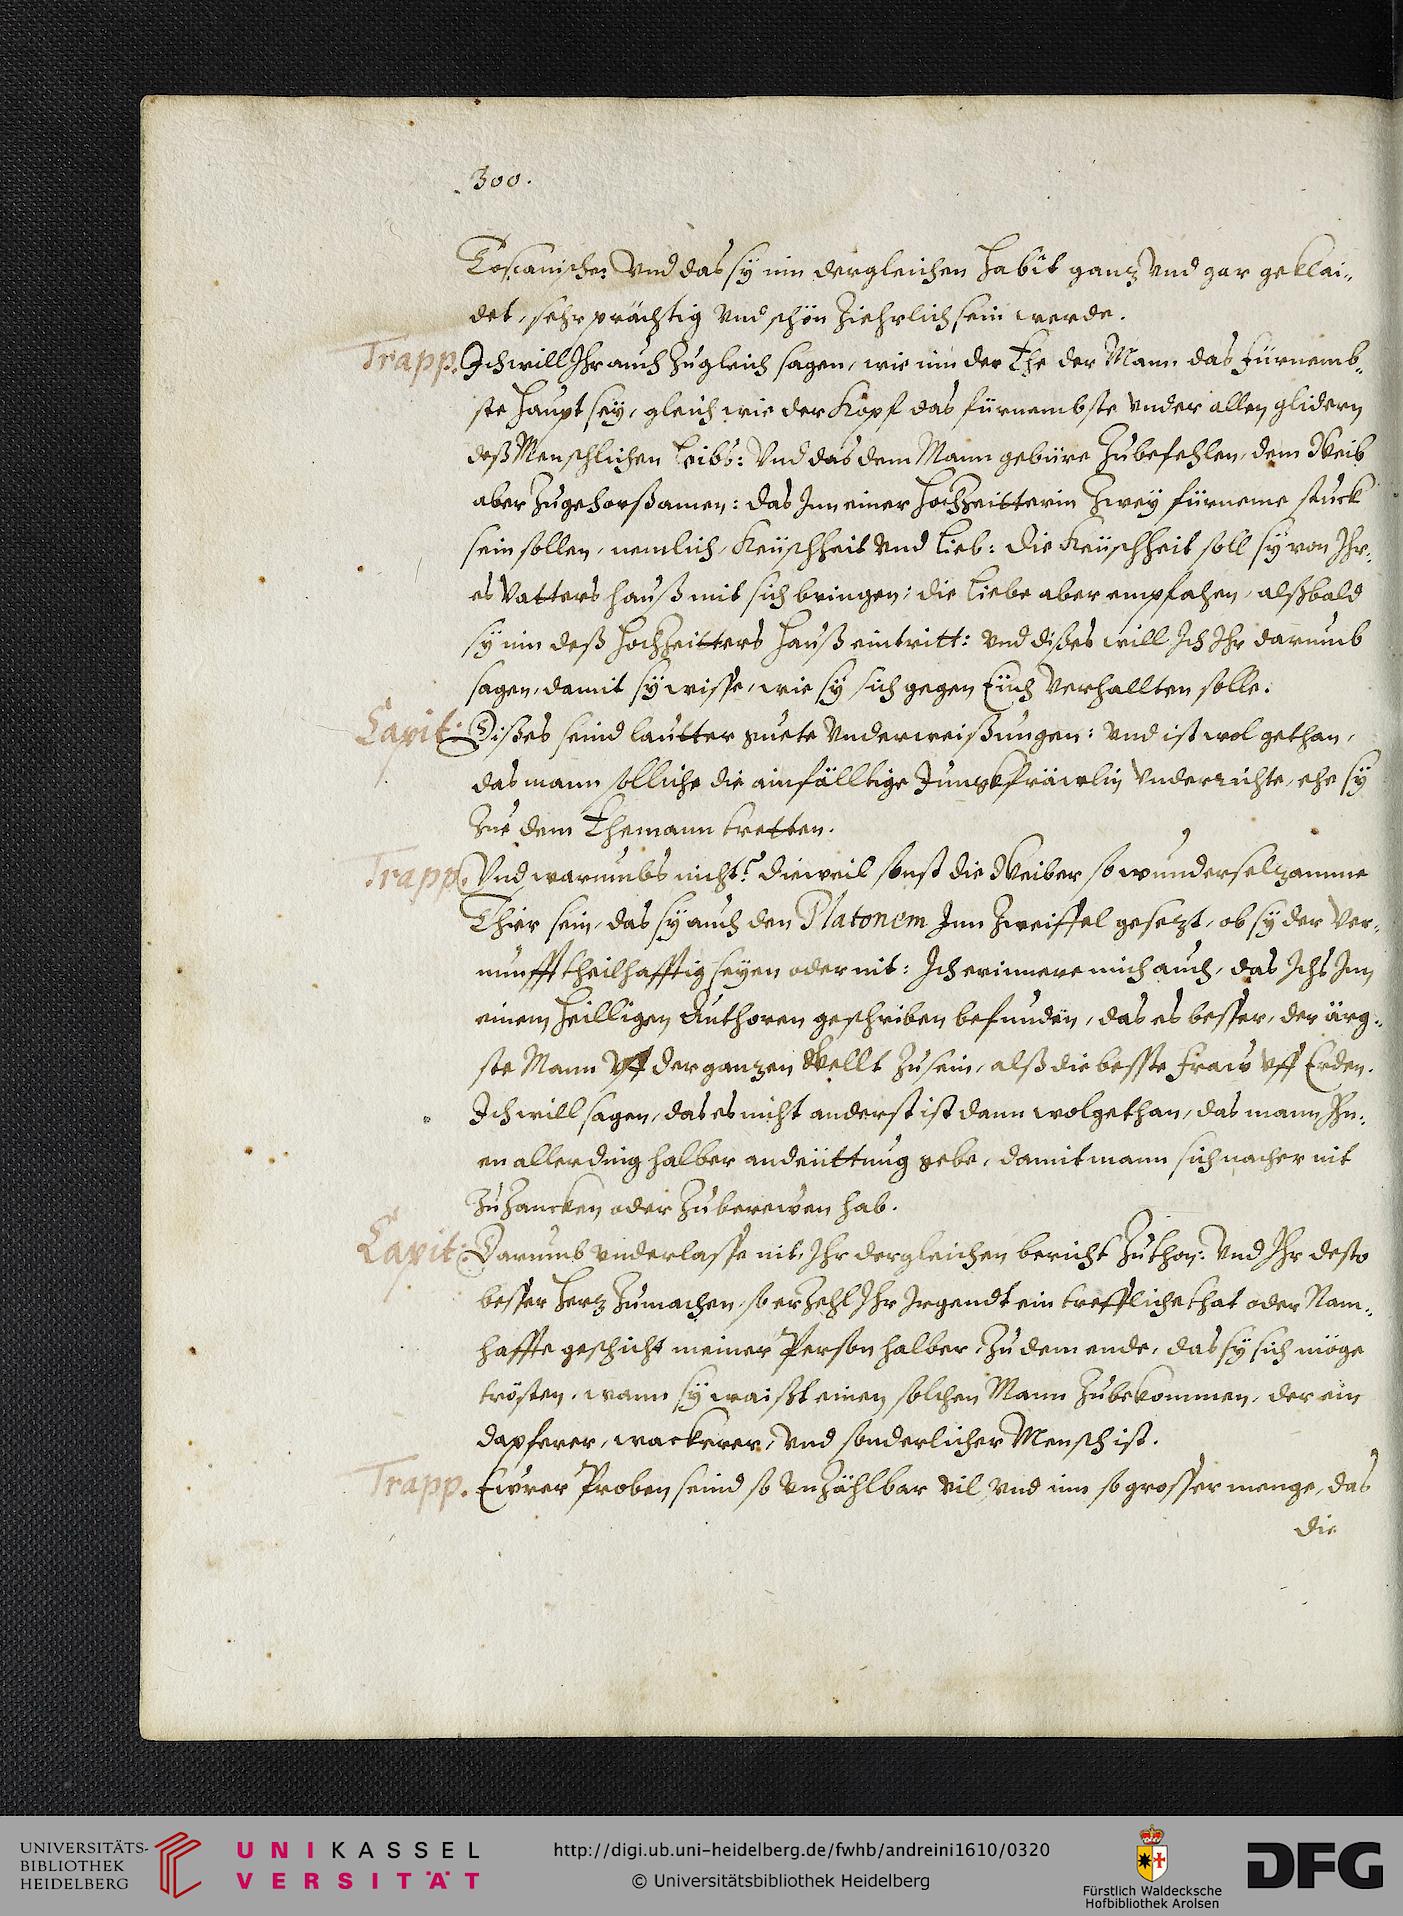 300.
Toscanischer Vnd das sy inn dergleichen Habit ganz Vnd gar geklai„
det, sehr prächtig Vnd schön Ziehrlich sein werde.
Trapp. Ich will Ihr auch Zugleich sagen, wie inn der Ehe der Mann das Fürnemb„
ste Haupt seÿ, gleich wie der Kopf das fürnembste Vnder allen glidern
deß Menschlichen Leibs: Vnd das dem Mann gebüre Zubefehlen, dem Weib
aber Zugehorßamen: das Inn einer Hochzeitterin Zweÿ fürneme stuck
sein sollen, nemlich, Keüschheit Vnd Lieb: die Keüschheit soll sÿ von Ihr„
es Vatters Hauß mit sich bringen; die Liebe aber empfahen, alßbald
sÿ inn deß Hochzeitters Hauß eintritt: Vnd dißes will Ich Ihr darumb
sagen, damit sÿ wisse, wie sÿ sich gegen Eüch Verhallten solle.
Capit: Dißes seind lautter guete Vnderweißungen: Vnd ist wol gethan,
das mann solliche die ainfälltige Jungkfräwlin Vnderrichte, ehe sÿ
Zue dem Ehemann tretten.
Trapp. Vnd warumbs nicht? dieweil sonst die Weiber so wunderselzamme
Thier sein, das sÿ auch den Platonem Inn Zweiffel gesezt, ob sÿ der Ver„
nunfft theilhafftig seÿen oder nit: Ich erinnere mich auch, das Ichs Inn
einem Heilligen Authoren geschriben befunden, das es besser, der ärg„
ste Mann Vff der ganzen Wellt Zu sein, alß die beste Fraw Vff Erden.
Ich will sagen, das es nicht anderst ist dann wolgethan, das mann Ihn„
en allerding halber andeüttung gebe, damit mann sich nacher nit
Zu Zancken oder Zuberewen hab.
Capit: Darumb Vnderlasse nit, Ihr dergleichen bericht Zuthon: Vnd Ihr desto
besser Herz Zumachen, so erzehl Ihr Irgendt ein treffliche that oder Nam„
haffte geschicht meiner Person halber, Zu dem ende, das sÿ sich möge
trösten, wann sÿ waißt einen solchen Mann Zubekommen, der ein
dapferer, wackerer, Vnd sonderlicher Mensch ist.
Trapp. Ewrer Proben seind so Vnzählbar vil Vnd inn so grosser menge, das
die
UNIVERSITÄTS-
BIBLIOTHEK
HEIDELBERG
UNIKASSEL
VERSITÄT
http://digi.ub.uni-heidelberg.de/fwhb/andreini1610/0320
© Universitätsbibliothek Heidelberg
Fürstlich Waldecksche
Hofbibliothek Arolsen
DFG